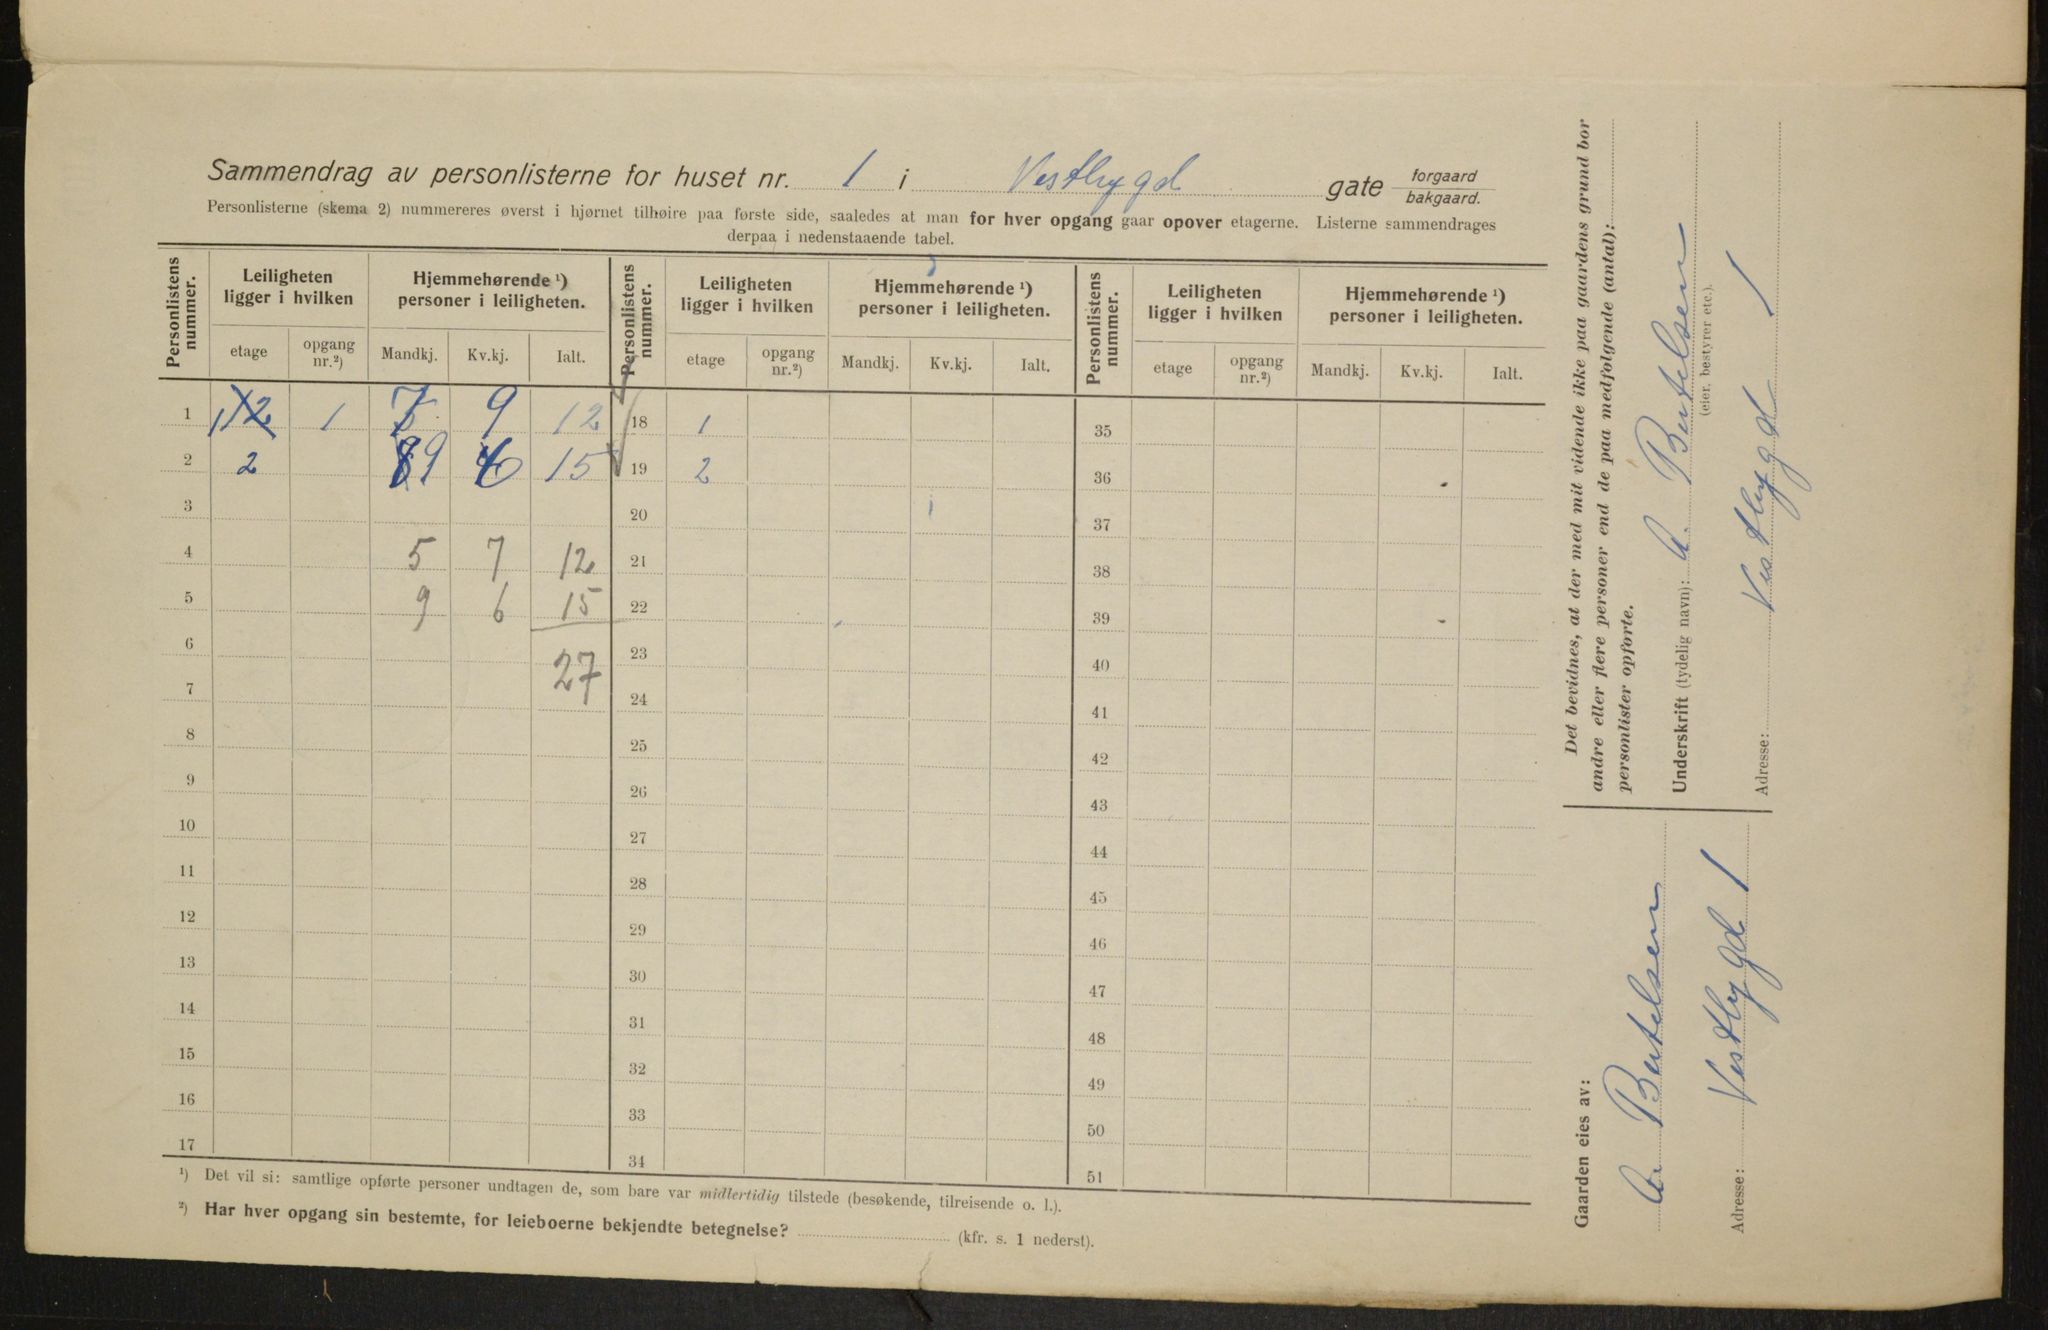 Sammendrag av personlisterne for huset nr. 1 i Vestbygd gate forgaard bakgaard.
Personlisterne (skema 2) nummereres øverst i hjørnet tilhøire paa første side, saaledes at man for hver opgang gaar opover etagerne. Listerne sammendrages
derpaa i nedenstaaende tabel.
Personlistens nummer. Leiligheten ligger i hvilken Hjemmehørende ¹) personer i leiligheten. Personlistens nummer. Leiligheten ligger i hvilken Hjemmehørende ¹) personer i leiligheten. Personlistens nummer. Leiligheten ligger i hvilken Hjemmehørende ¹) personer i leiligheten.
etage opgang nr.²) Mandkj. Kv.kj. Ialt. etage opgang nr.²) Mandkj. Kv.kj. Ialt. etage opgang nr.²) Mandkj. Kv.kj. Ialt.
1 1 1 9 12 18 1 35
2 2 9 6 15 19 2 36
3 20 37
4 5 7 12 21 38
5 9 6 15 22 39
6 23 40
27
7 24 41
8 25 42
9 26 43
10 27 44
11 28 45
12 29 46
13 30 47
14 31 48
15 32 49
16 33 50
17 34 51
¹) Det vil si: samtlige opførte personer undtagen de, som bare var midlertidig tilstede (besøkende, tilreisende o. l.).
²) Har hver opgang sin bestemte, for leieboerne bekjendte betegnelse? (kfr. s. 1 nederst).
Det bevidnes, at der med mit vidende ikke paa gaardens grund bor
andre eller flere personer end de paa medfolgende (antal):
personlister opforte.
Underskrift (tydelig navn): A. Bertelsen
(eier, bestyrer etc.).
Adresse: Vestbygd 1
Gaarden eies av:
A. Bertelsen
Adresse: Vestbygd 1